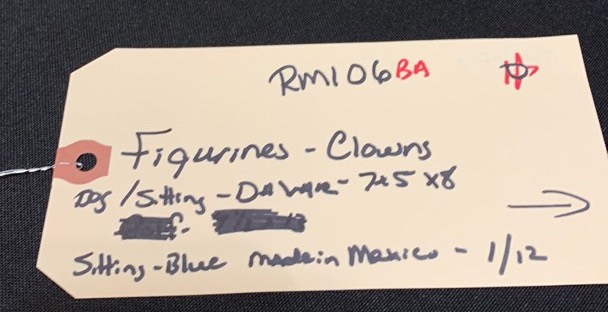 RM106BA
Figurines - Clowns
Dog / Sitting - - 7x5x8
Sitting - Blue made in Mexico - 1/12